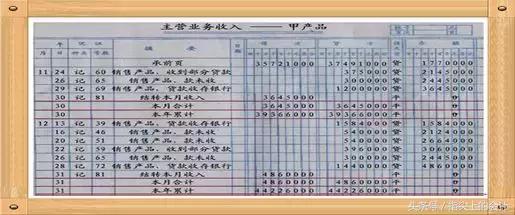 主营业务收入 —— 甲产品
年 凭证 摘要 日期 借方 贷方 余额
月 日
承前页 35721000 37491000 贷 1770000
11 24 记 60 销售产品、收到部分货款 375000 贷
26 记 65 销售产品、款未收 300000 贷
29 记 69 销售产品、货款收存银行 1200000 贷 3645000
30 记 81 结转本月收入 3645000 平 0
30 本月合计 3645000 3645000 平 0
30 本年累计 39366000 39366000 平 0
12 13 记 39 销售产品、货款收存银行 1584000 贷 1584000
16 记 46 销售产品、款未收 540000 贷 2124000
20 记 51 销售产品、款未收 540000 贷 2664000
22 记 59 销售产品、收到部分货款 360000 贷
26 记 65 销售产品、款未收 贷
28 记 72 销售产品、货款收存银行 贷
31 记 81 结转本月收入 4860000 平 0
31 本月合计 4860000 4860000 平 0
31 本年累计 44226000 44226000 平 0
头条号 / 指尖上的会计